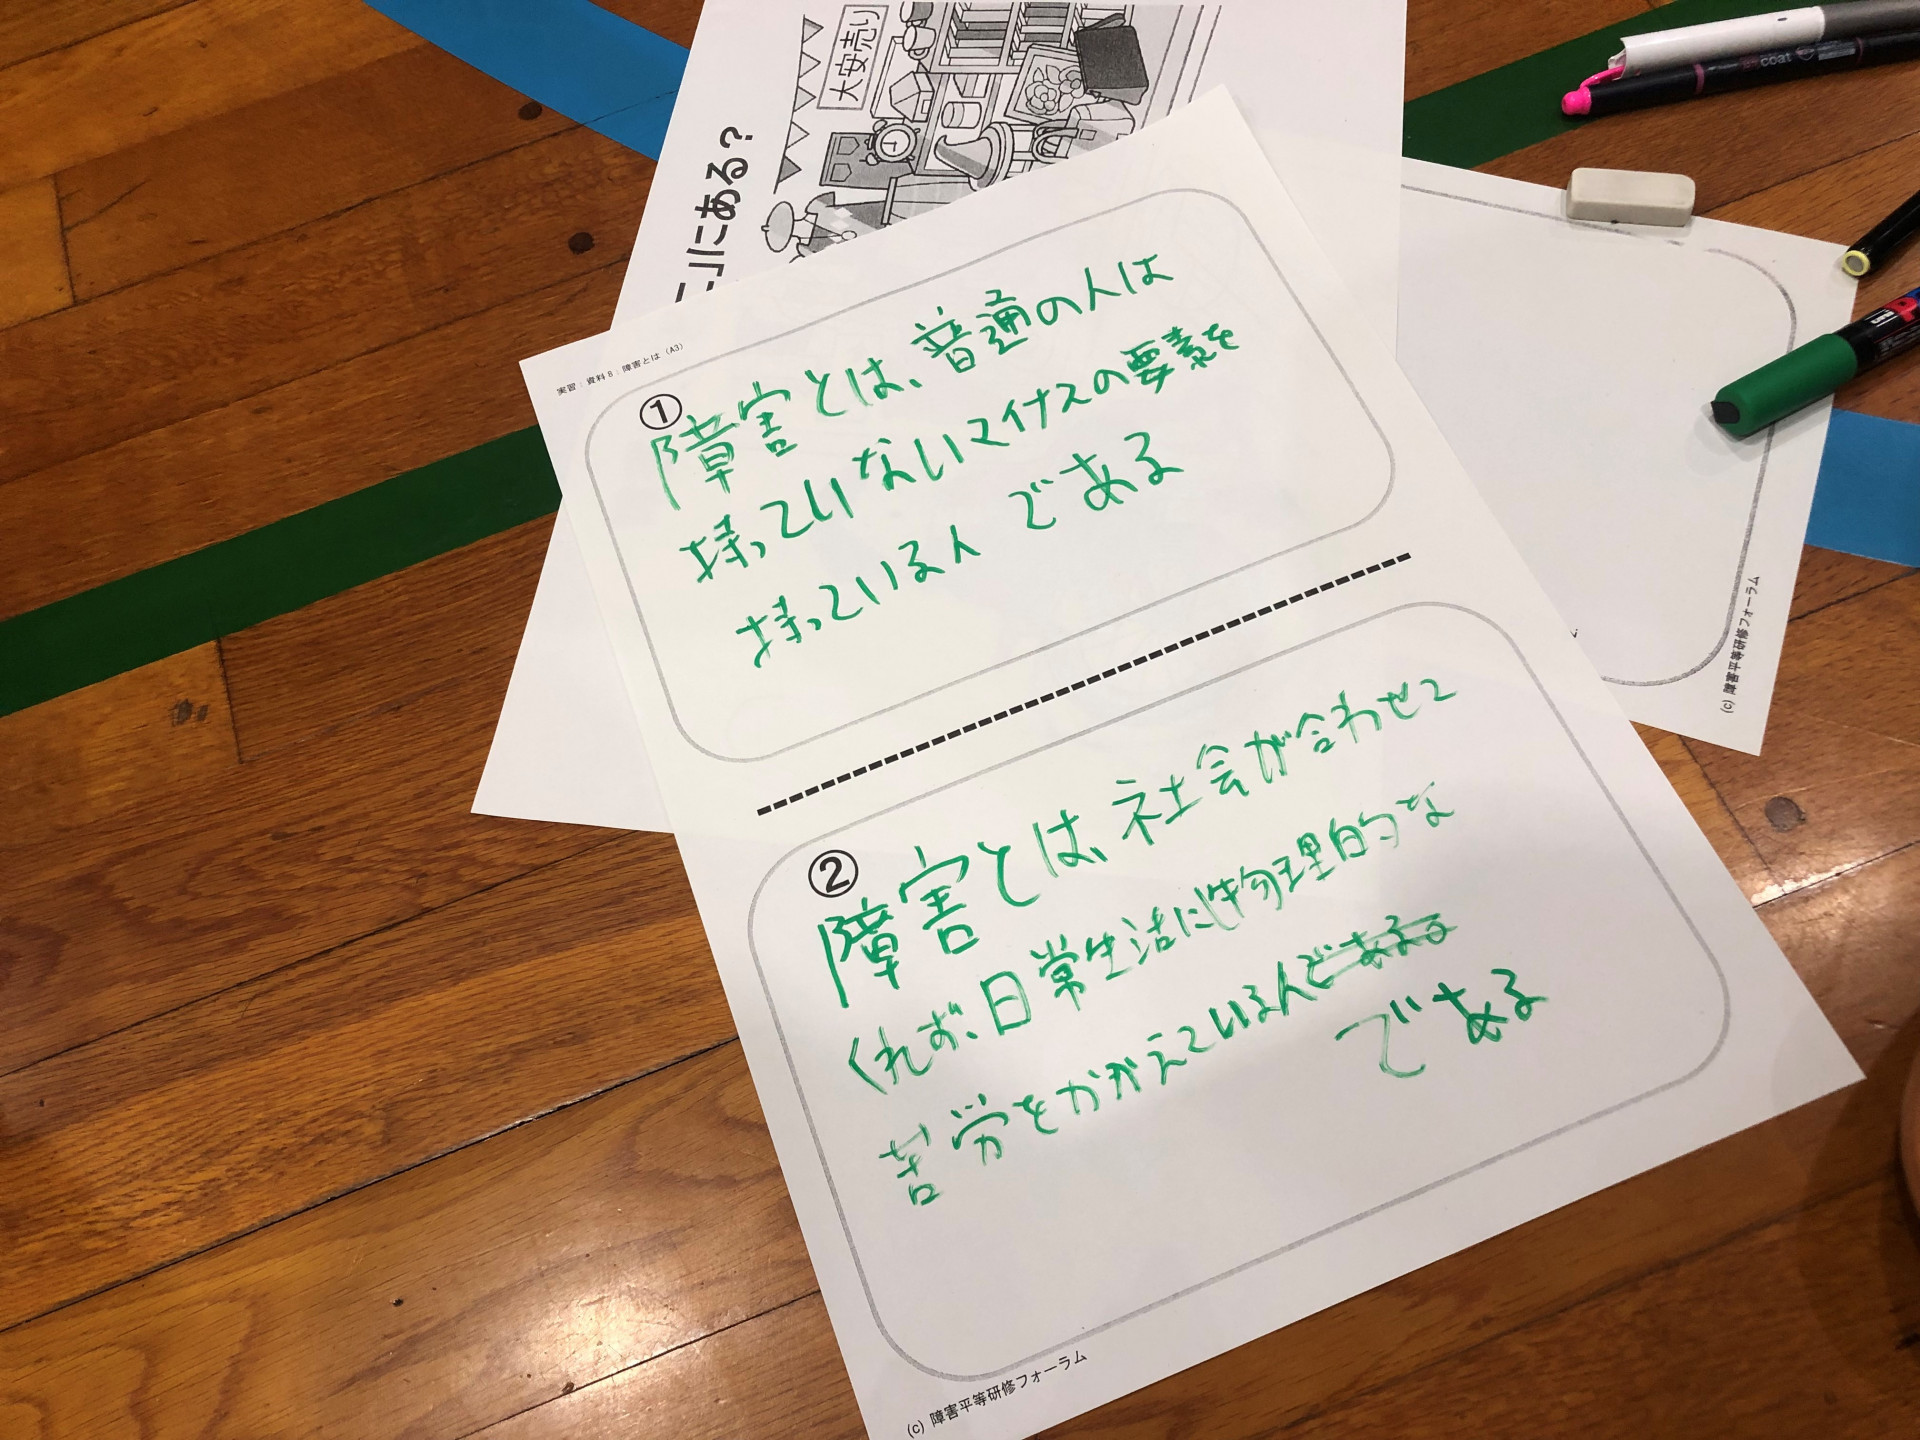 大安売り
こ」にある？
実習：資料8：障害とは（A3）
①
障害とは、普通の人は
持っていないマイナスの要素を
持っている人 である
②
障害とは、社会が合わせて
くれず、日常生活に物理的な
苦労をかかえている人である
である
(c) 障害平等研修フォーラム
(c) 障害平等研修フォーラム
coat